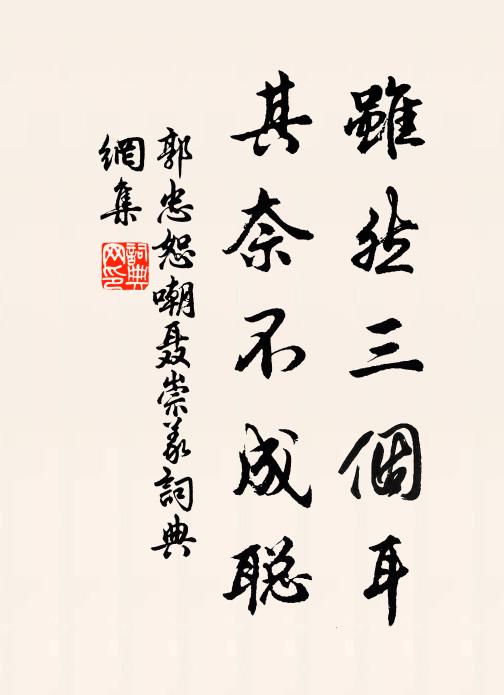 雖然三個耳
其奈不成聪
郭忠恕嘲聂崇义詞典
網集
詞典網印